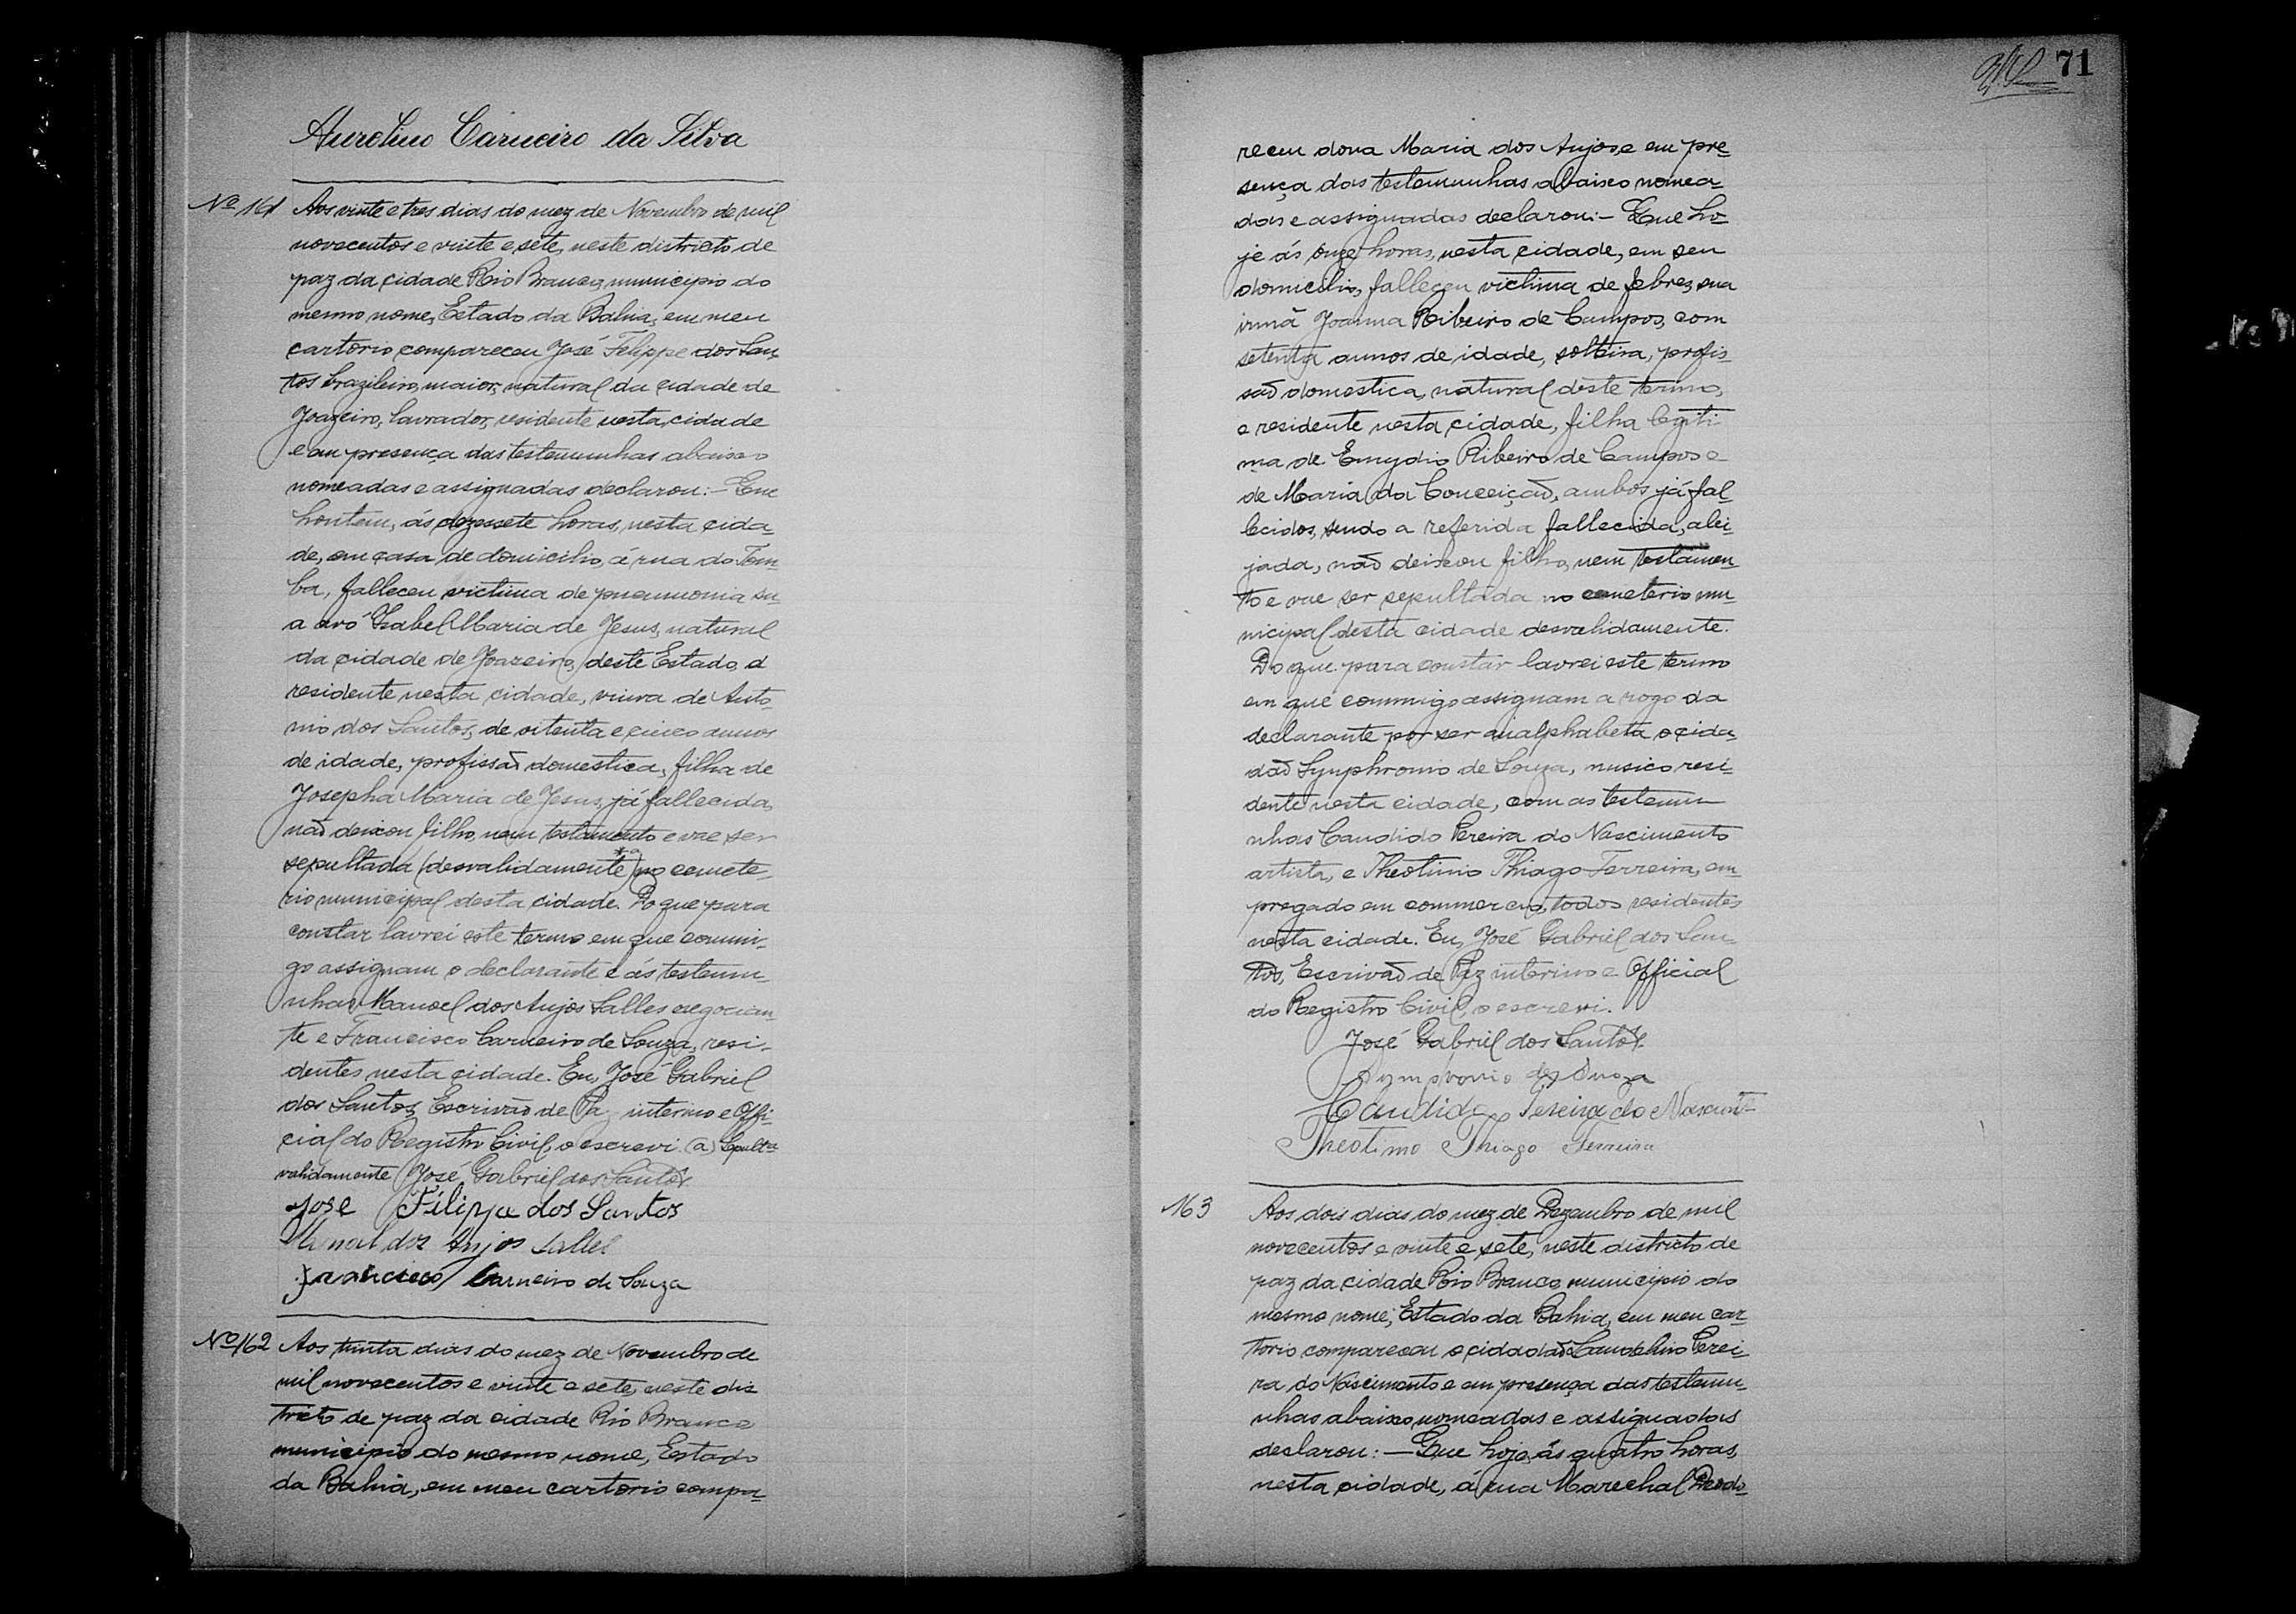 Aurelino Carneiro da Silva
Nº 161 Aos vinte e tres dias do mez de Novembro de mil
novecentos e vinte e sete, neste districto de
paz da cidade Rio Branco, municipio do
mesmo nome, Estado da Bahia, em meu
cartorio compareceu José Felippe dos San,
tos brazileiro, maior, natural da cidade de
Joazeiro, lavrador, residente nesta cidade
e em presença das testemunhas abaixo
nomeadas e assignadas declarou:- Que
hontem, ás dezessete horas, nesta cida-
de, em casa de domicilio, á rua do Tom-
ba, falleceu victima de pneumonia su-
a avó Izabel Maria de Jesus, natural
da cidade de Joazeiro, deste Estado, e
residente nesta cidade, viuva de Anto-
nio dos Santos, de oitenta e cinco annos
de idade, profissaõ domestica, filha de
Josepha Maria de Jesus, já fallecida,
naõ deixou filho, nem testamento e vae ser
sepultada (desvalidamente) no cemete-
rio municipal desta cidade. Do que para
constar lavrei este termo em que commi-
go assignam o declarante e ás testemu-
nhas Manoel dos Anjos Salles negocian-
te e Francisco Carneiro de Souza, resi-
dentes nesta cidade. Eu, José Gabriel
dos Santos, Escrivão de Paz interino e Offi-
cial do Registro Civil, o escrevi. (a)
validamente José Gabriel dos Santos
José Filippe dos Santos
Manoel dos Anjos Salles
Francisco Carneiro de Souza
Nº 162 Aos trinta dias do mez de Novembro de
mil novecentos e vinte e sete, neste dis
tricto de paz da cidade Rio Branco
municipio do mesmo nome, Estado
da Bahia, em meu cartorio compa-
71
receu dona Maria dos Anjos, e em pre-
sença das testemunhas abaixo nomea-
das e assignadas declarou:- Que ho-
je ás onze horas, nesta cidade, em seu
domicilio, falleceu victima de febre, sua
irmã Joanna Ribeiro de Campos, com
setenta annos de idade, solteira, profis-
saõ domestica, natural deste termo,
e residente nesta cidade, filha legiti-
ma de Emydio Ribeiro de Campos e
de Maria da Conceiçaõ, ambos já fal-
lecidos, sendo a referida fallecida, alei-
jada, naõ deixou filho, nem testamen-
to e vae ser sepultada no cemeterio mu-
nicipal desta cidade desvalidamente.
Do que para constar lavrei este termo
em que commigo assignam a rogo da
declarante por ser analphabeta o cida-
daõ Symphronio de Souza, musico resi-
dente nesta cidade, com as testemu-
nhas Candido Pereira do Nascimento
artista, e Theotimo Thiago Ferreira, em-
pregado em commercio, todos residentes
nesta cidade. Eu, José Gabriel dos San-
tos, Escrivaõ de Paz interino e Official
do Registro Civil, o escrevi.
José Gabriel dos Santos
Symphronio de Souza
Candido Pereira do Nascimento
Theotimo Thiago Ferreira
163 Aos dois dias do mez de Dezembro de mil
novecentos e vinte e sete, neste districto de
paz da cidade Rio Branco municipio do
mesmo nome, Estado da Bahia, em meu car-
torio compareceu o cidadaõ Perei-
ra do Nascimento e em presença das testemu-
nhas abaixo nomeadas e assignadas
declarou: - Que hoje, ás quatro horas,
nesta cidade, á rua Marechal Deodo-